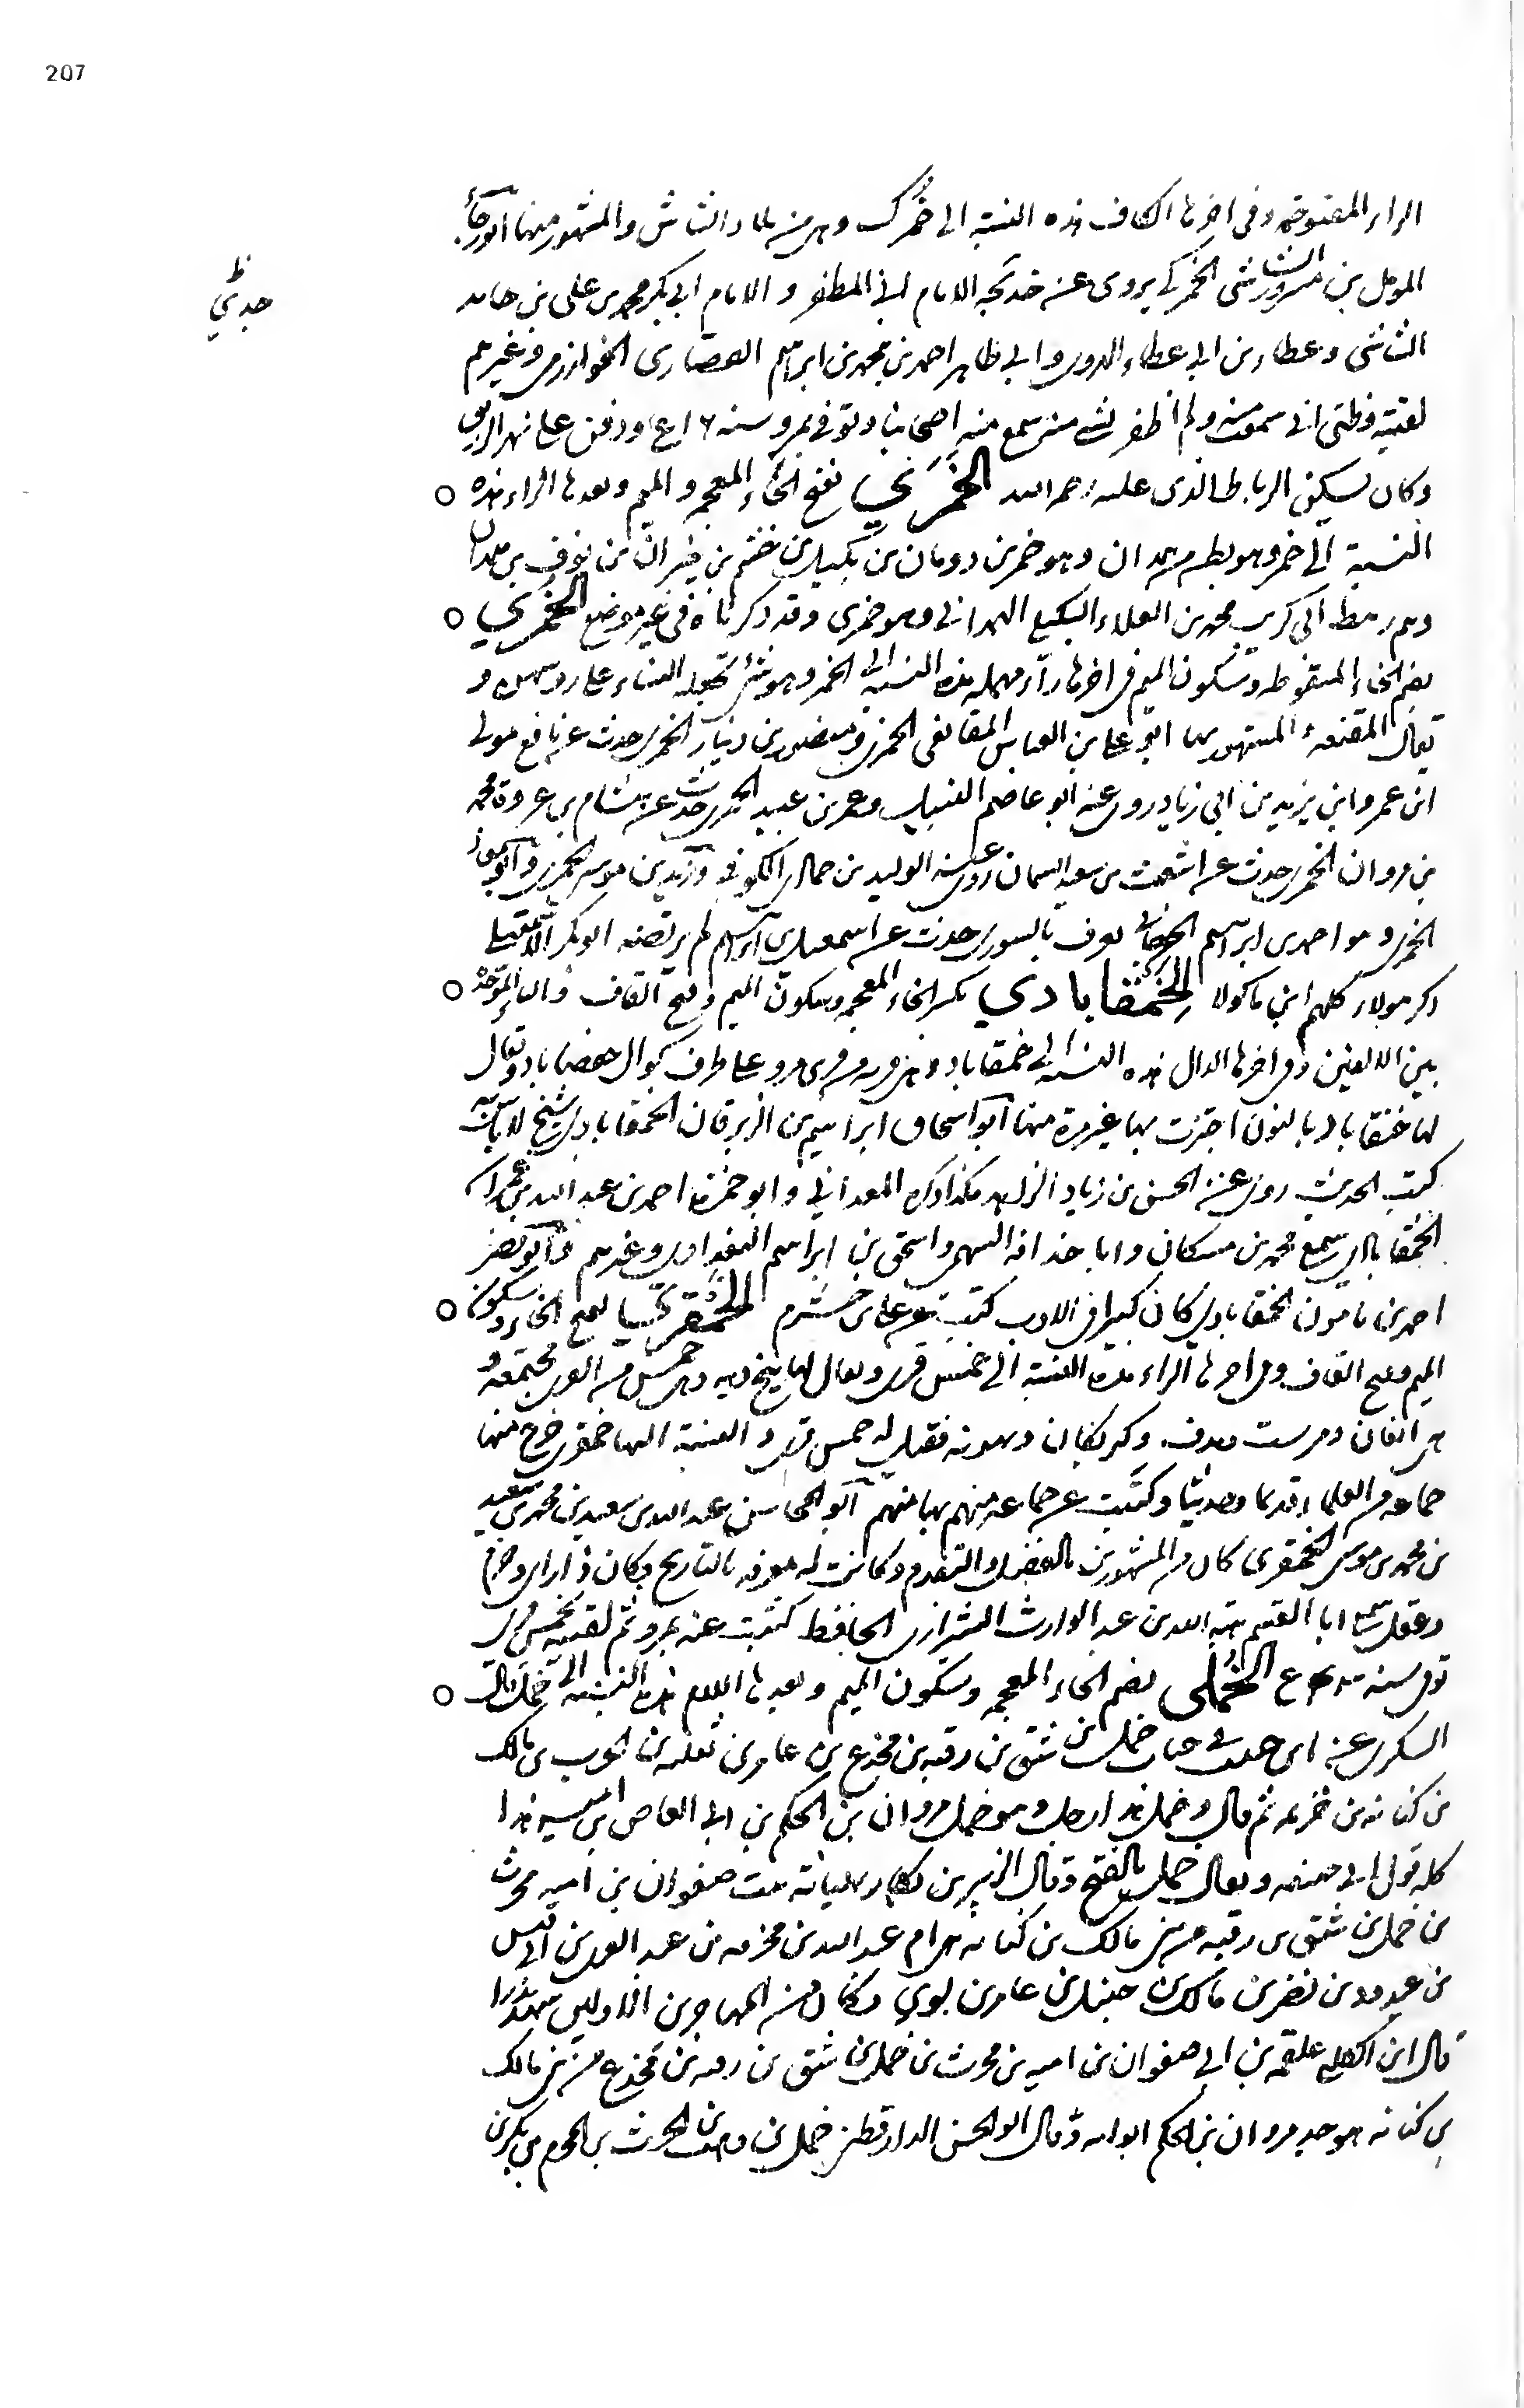 207
الراء المفتوحة وفى اخرها الكاف هذه النسبة الى خمرك وهى من بلاد الشاش والمشهور منها ابو رجاء
المومل بن مسرور الشاشى الخمركى يروى عنه جدى الامام ابى المظفر و الامام ابى بكر محمد بن على بن حامد
جدي ظ
الشاشى وعطاء بن ابى عطاء الهروى وابى طاهر احمد بن محمد بن ابراهيم القصارى الخوارزمى وغيرهم
لقيته وظنى انى سمعت منه ولم اظفر بشى منه سمع منه اصحابنا وتوفى بمرو سنه ودفن على نهر الرزيق
وكان يسكن الرباط الذى عليه رحمه الله الخَمَري بفتح الخاء المعجمه والميم وبعدها الراء هذه
النسبة الى خمر وهو بطن من همدان وهو خمر بن دومان بن بكيل بن خثم بن خيران بن نوف بن همدان
وهم رهط ابى كريب محمد بن العلاء البكيلى الهمدانى وهو خمرى وقد ذكرناه فى غير موضع الخُمْري
بضم الخاء المنقوطه وسكون الميم فى اخرها راء مهمله هذه النسبه الى الخمر وهو شى تجعله النساء على روسهن و
يقال المقنعه المشهور بها ابو على بن العباس المقانعى الخمرى ومنصور بن دينار الخمرى حدث عن نافع مولى
ابن عمر وابن يزيد بن ابى زياد روى عنه ابو عاصم النبيل وعمر بن عبيد الخمرى حدث عن هشام بن عروة محمد
بن مروان الخمرى حدث عن اشعث بن سعيد السمان روى عنه الوليد بن حماد الكوفى وزيد بن موسى الخمرى وابو معاذ
الخمرى هو احمد بن ابراهيم الجرجانى يعرف بالسورى حدث عن اسمعيل بن ابراهيم لم يرتضه ابو بكر الاسمعيلى
ذكر هولاء كلهم ابن ماكولا الخِمْقَابادي بكسر الخاء المعجمه وسكون الميم وفتح القاف والباء الموحدة
بين الالفين وفى اخرها الدال هذه النسبه الى خمقاباد وهى قريه من قرى مرو على طرف كوال حفصاباد ويقال
لها خنقاباد بالنون اجتزت بها غير مرة منها ابو اسحاق ابراهيم بن الزبرقان الخمقابادى شيخ لا باس به
كتب الحديث روى عنه الحسن بن زياد الزاهد هكذا ذكره المعدانى وابو احمد بن عبد الله بن
الخمقابادى سمع محمد بن مسكان وابا حذافه السهمى واسحق بن ابراهيم البغدادى وغيرهم وابو نصر
احمد بن مامون الخمقابادى كان كبيرا فى الادب كتب عن على بن خشرم الخَمْقَري بفتح الخاء وسكون
الميم وفتح القاف وفى اخرها الراء هذه النسبة الى خمس قرى ويقال لها پنج ديه وهى خمس من القرى مجتمعة و
هى ايغان ومرست وبهونه فقيل له خمس قرى والنسبة اليها خمقرى خرج منها
جماعه من العلماء قديما وحديثا وكتبت عن جماعه منهم بها منهم ابو المحاسن عبد الله بن سعيد بن محمد بن سعيد
بن محمد بن موسى الخمقرى كان من المشهورين بالفضل والتقدم وكانت له معرفه بالتاريخ وكان ذا راى وحزم
وعقل سمع ابا القسم هبة الله بن عبد الوارث الشيرازى الحافظ كتبت عنه بمرو ثم لقيته بخمس قرى
توفى سنه الخُمْلى بضم الخاء المعجمه وسكون الميم وبعدها اللام هذه النسبه الى خمل قال
السكرى عن ابن حبيب خمل بن شق بن رقبه بن مخدج بن عامر بن ثعلبه بن الحرب بن مالك
بن كنانه بن خزيمه ثم قال وخمل هو خمل مروان بن الحكم بن ابى العاص بن اميه هذا
كله قول ويقال خمل بالفتح وقال الزبير بن بكار بنت صفوان بن اميه بن محرث
بن خمل بن شق بن رقبه من بنى مالك بن كنانه هى ام عبد الله بن مخرمه بن عبد العزى بن ابى قيس
بن عبد ود بن نصر بن مالك بن حسل بن عامر بن لوى وكان من المهاجرين الاولين شهد بدرا
قال ابن الكلبى علقمه بن ابى صفوان بن اميه بن محرث بن خمل بن شق بن رقبه بن مخدج من بنى مالك
بن كنانه هو جد مروان بن الحكم ابو امه وقال ابو الحسن الدارقطنى خمل بن وهب بن الحرث بن